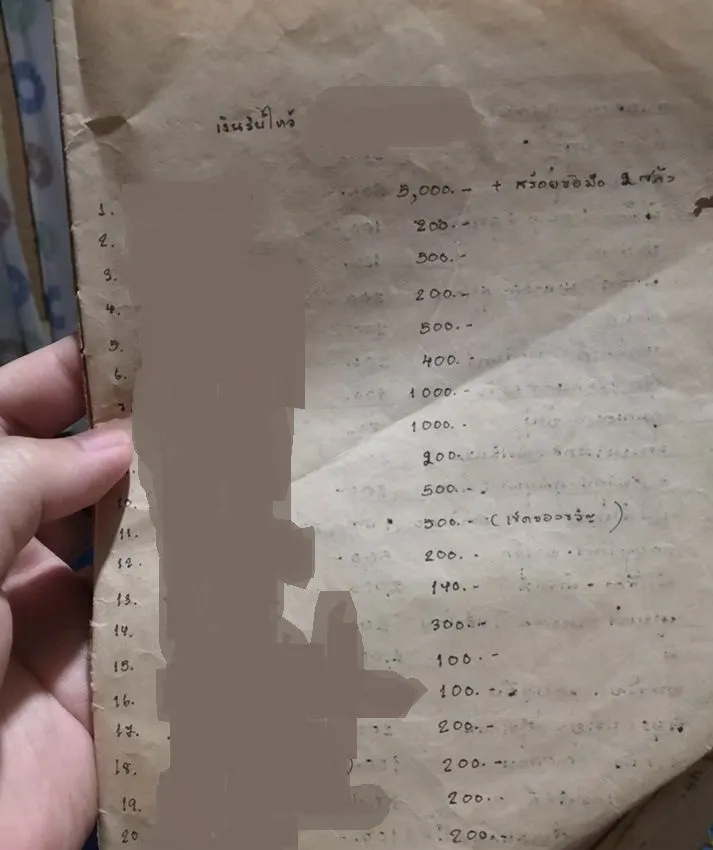 เงินรับไหว้
1. 5,000.- + สร้อยข้อมือ 2 สลึง
2. 200.-
3. 500.-
4. 200.-
5. 500.-
6. 400.-
7. 1000.-
1000.-
200.-
10. 500.-
11. 500.- (เช็คของขวัญ)
12. 200.-
13. 140.-
14. 300.-
15. 100.-
16. 100.-
17. 200.-
18. 200.-
19. 200.-
20. 200.-